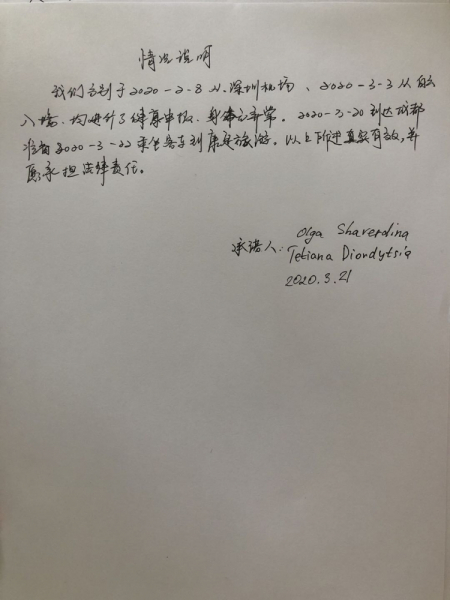 情况说明
我们分别于2020-2-8从深圳机场、2020-3-3从
入境、均进行了健康申报、身体无异常。2020-3-20到达成都
准备2020-3-22乘坐客车到康定旅游。以上所述真实有效,并
愿承担法律责任。
承诺人: Olga Shaverdina
Tetiana Diordytsia
2020.3.21